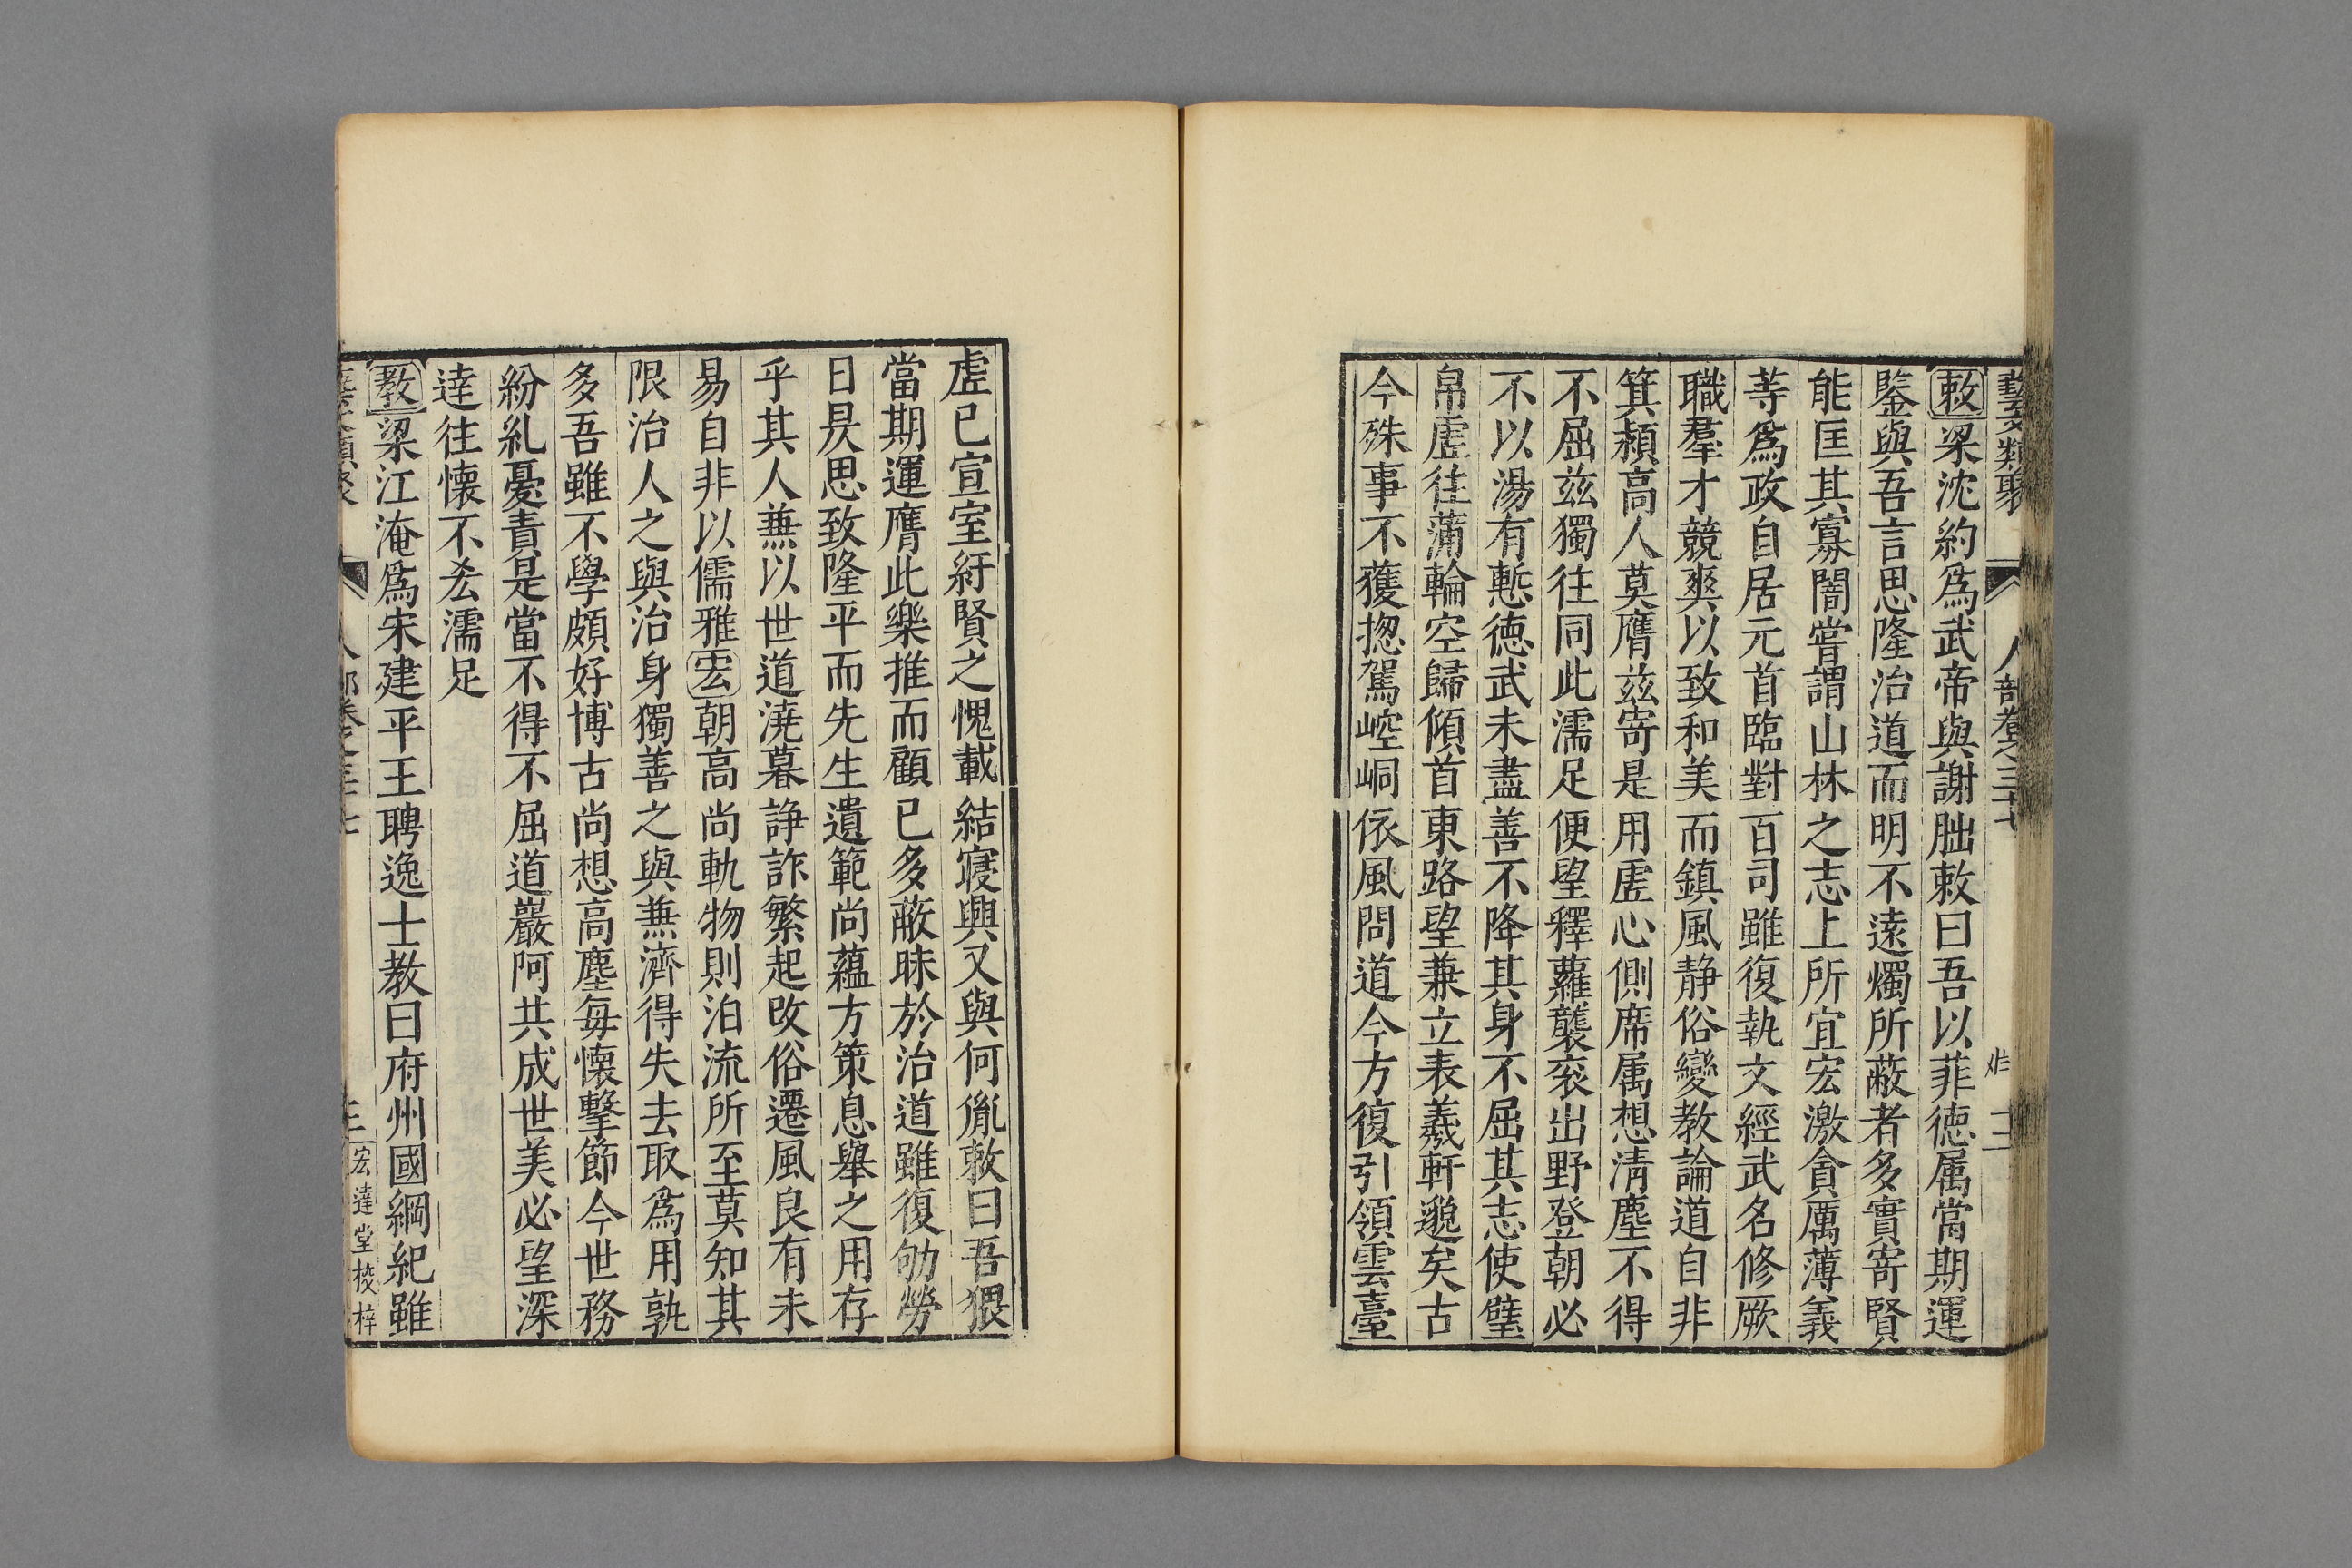 藝文類聚 人部卷之三十七 二
敕梁沈約爲武帝與謝朏敕曰吾以菲德属當期運
鑒與吾言思隆治道而明不逺燭所蔽者多實寄賢
能匡其寡闇嘗謂山林之志上所宜宏激貪厲薄義
等爲政自居元首臨對百司雖復執文經武名修厥
職羣才競爽以致和美而鎮風静俗變教論道自非
箕潁高人莫膺兹寄是用虗心側席属想清塵不得
不屈兹獨往同此濡足便望釋蘿襲衮出野登朝必
不以湯有慙德武未盡善不降其身不屈其志使璧
帛虗往蒲輪空歸傾首東路望兼立表羲軒邈矣古
今殊事不獲揔駕崆峒依風問道今方復引領雲臺
虗已宣室紆賢之愧載結寢興又與何胤敕曰吾猥
當期運膺此樂推而顧已多蔽昧於治道雖復劬勞
日昃思致隆平而先生遺範尚蘊方策息舉之用存
乎其人兼以世道澆暮諍詐繁起改俗遷風良有未
易自非以儒雅宏朝高尚軌物則泊流所至莫知其
限治人之與治身獨善之與兼濟得失去取爲用孰
多吾雖不學頗好博古尚想高塵每懷擊節今世務
紛糺憂責是當不得不屈道巖阿共成世美必望深
逹往懷不吝濡足
教梁江淹爲宋建平王聘逸士教曰府州國綱紀雖
三 宏逹堂校梓